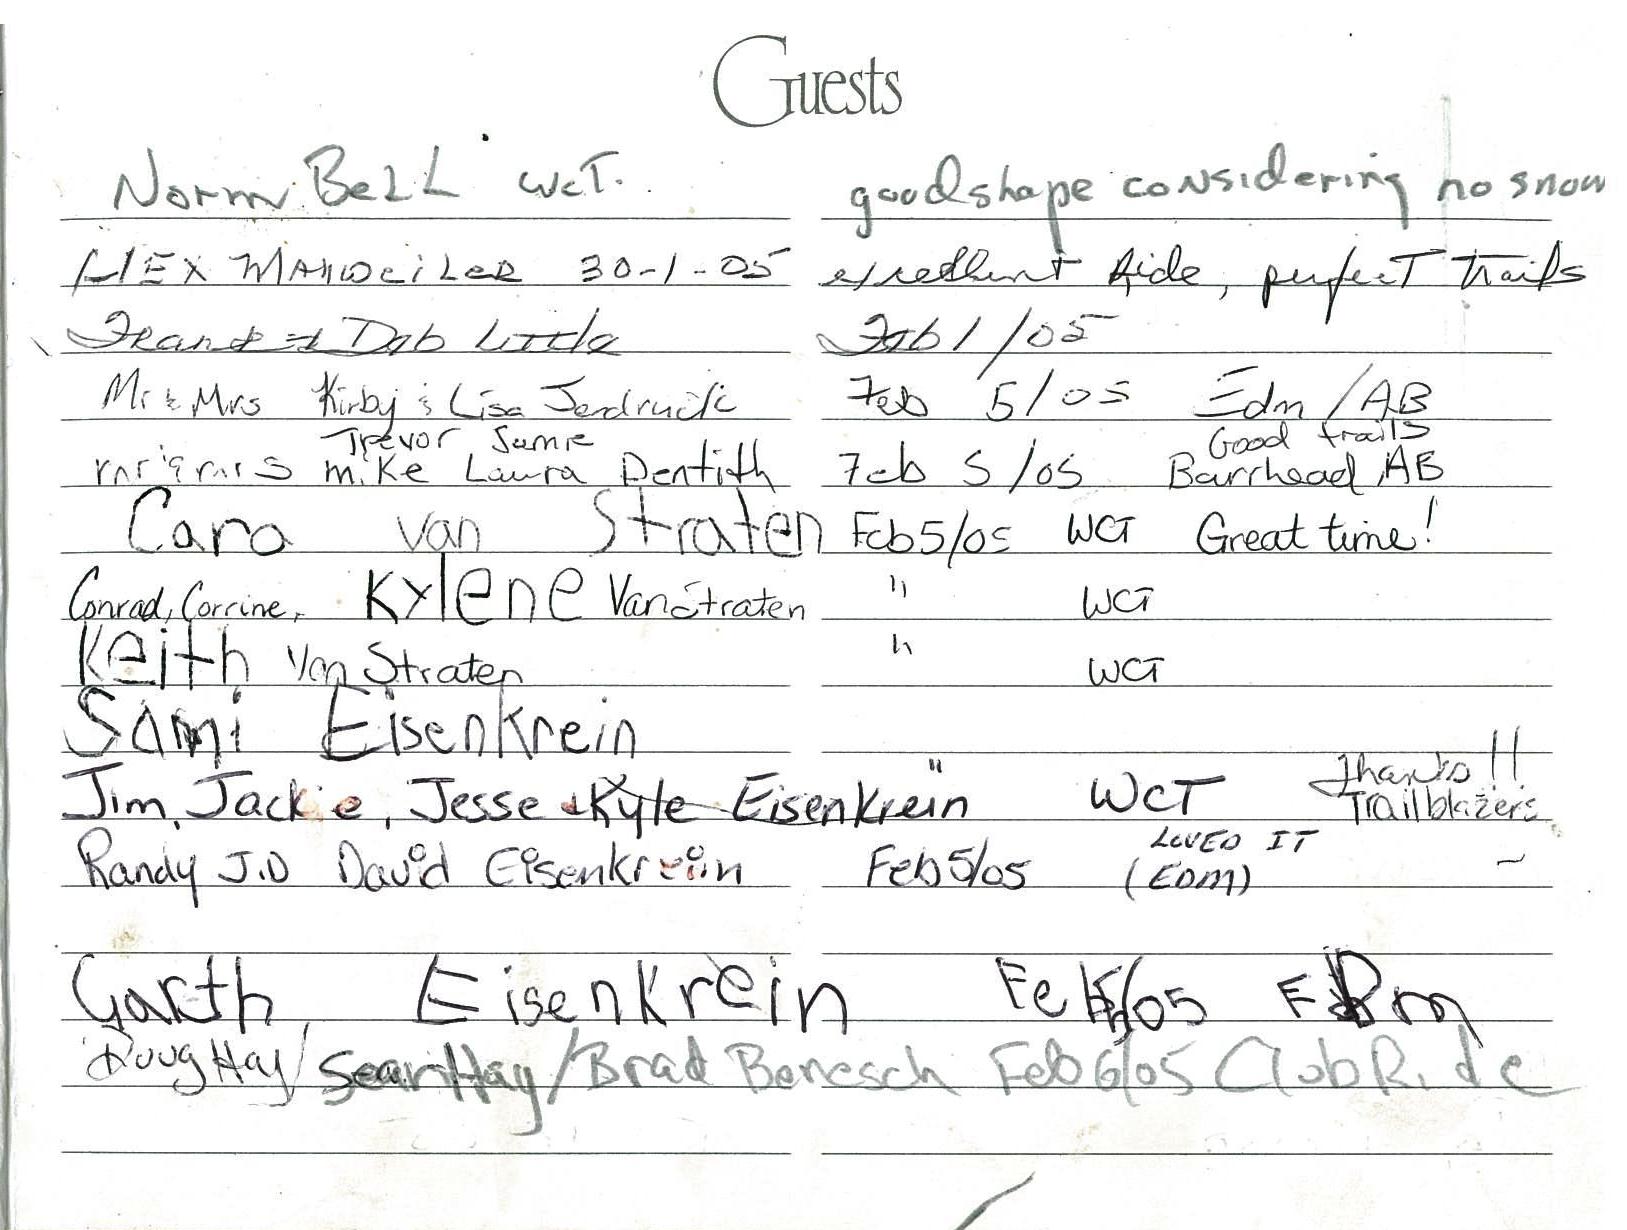 Guests
Norm Bell WCT. good shape considering no snow
Alex Manweiler 30-1-05 excellent Ride, perfect trails
Frank & Deb Little Feb 1/05
Mr & Mrs Kirby & Lisa Jendruck Feb 5/05 Edm/AB
Trevor Jamie Good trails
mr & mrs mike Laura Dentith Feb 5/05 Barrhead AB
Cara van Straten Feb 5/05 WCT Great time!
Conrad, Corrine, Kylene VanStraten " WCT
Keith Van Straten " WCT
Sami Eisenkrein
Jim, Jackie, Jesse & Kyle Eisenkrein " WCT Thanks!! Trailblazers
LOVED IT
Randy J.D David Eisenkrein Feb 5/05 (EDM)
Garth Eisenkrein Feb 5/05 EDm
Doug Hay/ Sean Hay/Brad Benesch Feb 6/05 Club Ride